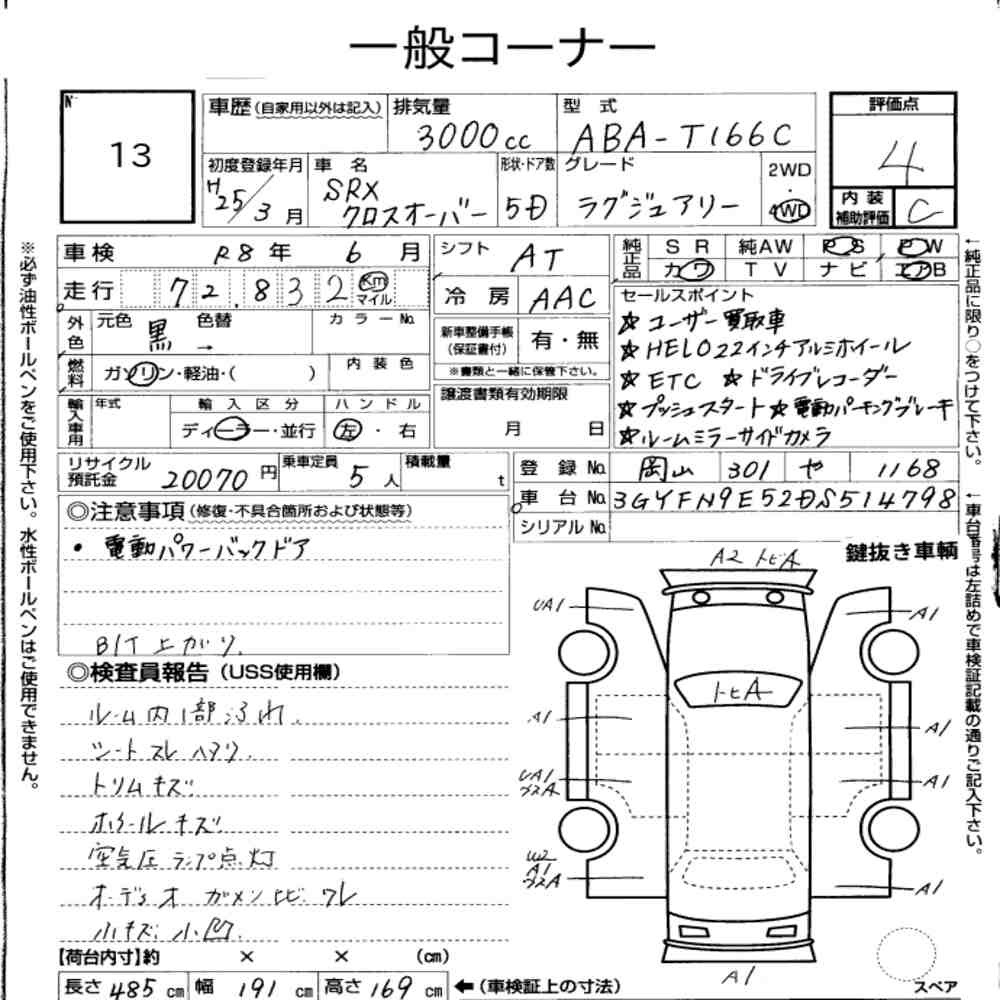 一般コーナー
№
13
車歴(自家用以外は記入)
排気量
3000cc
型 式
ABA-T166C
評価点
4
初度登録年月
H25/3月
車 名
SRX
クロスオーバー
形状・ドア数
5D
グレード
ラグジュアリー
2WD
・
4WD
内 装
補助評価
C
車検 R8年 6月
シフト AT
純正品
SR 純AW PS PW
カワ TV ナビ エアB
走行 72,832 Km マイル
冷 房 AAC
外色
元色 黒 色替 →
カラーNo.
新車整備手帳
(保証書付)
有・無
※書類と一緒に保管下さい。
燃料
ガソリン・軽油・( )
内 装 色
セールスポイント
☆ユーザー買取車
☆HELO22インチアルミホイール
☆ETC ☆ドライブレコーダー
☆プッシュスタート☆電動パーキングブレーキ
☆ルームミラーサイドカメラ
輸入車用
年式
輸 入 区 分
ディーラー・並行
ハ ン ド ル
左・右
譲渡書類有効期限
月 日
リサイクル
預託金
20070円
乗車定員
5人
積載量
t
登 録 No. 岡山 301 や 1168
車 台 No. 3GYFN9E52DS514798
シリアルNo.
◎注意事項(修復・不具合箇所および状態等)
・電動パワーバックドア
B/T上がり.
鍵抜き車輌
◎検査員報告(USS使用欄)
ルーム内1部汚れ.
シートスレ ハタリ.
トリムキズ
ホイールキズ
空気圧ランプ点灯
オーディオ ガメンヒビワレ
小キズ 小凹.
A2 トビA
UA1
A1
トビA
A1
A1
UA1
ヅスA
A1
U2
A1
ヅスA
A1
A1
スペア
【荷台内寸】約 × × (cm)
長さ 485cm 幅 191cm 高さ 169cm ←(車検証上の寸法)
※必ず油性ボールペンをご使用下さい。水性ボールペンはご使用できません。
←純正品に限り○をつけて下さい。
←車台番号は左詰めで車検証記載の通りご記入下さい。